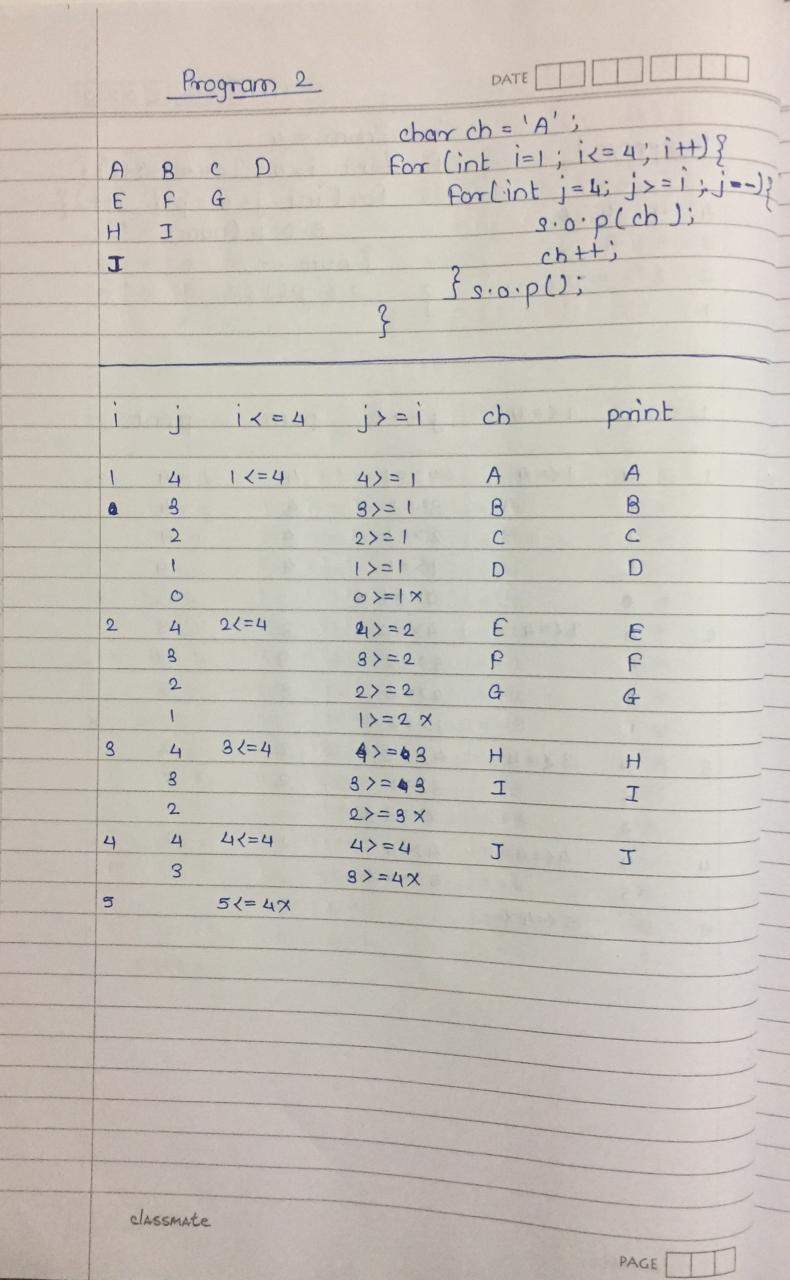 Program 2
DATE
char ch = 'A';
for (int i=1; i<=4; i++){
A B C D
for(int j=4; j>=i; j--){
E F G
s.o.p(ch);
H I
ch++;
I
} s.o.p();
}
i j i<=4 j>=i ch print
1 4 1<=4 4>=1 A A
3 3>=1 B B
2 2>=1 C C
1 1>=1 D D
0 0>=1x
2 4 2<=4 4>=2 E E
3 3>=2 F F
2 2>=2 G G
1 1>=2 x
3 4 3<=4 4>=3 H H
3 3>=3 I I
2 2>=3 x
4 4 4<=4 4>=4 J J
3 3>=4x
5 5<=4x
classmate
PAGE